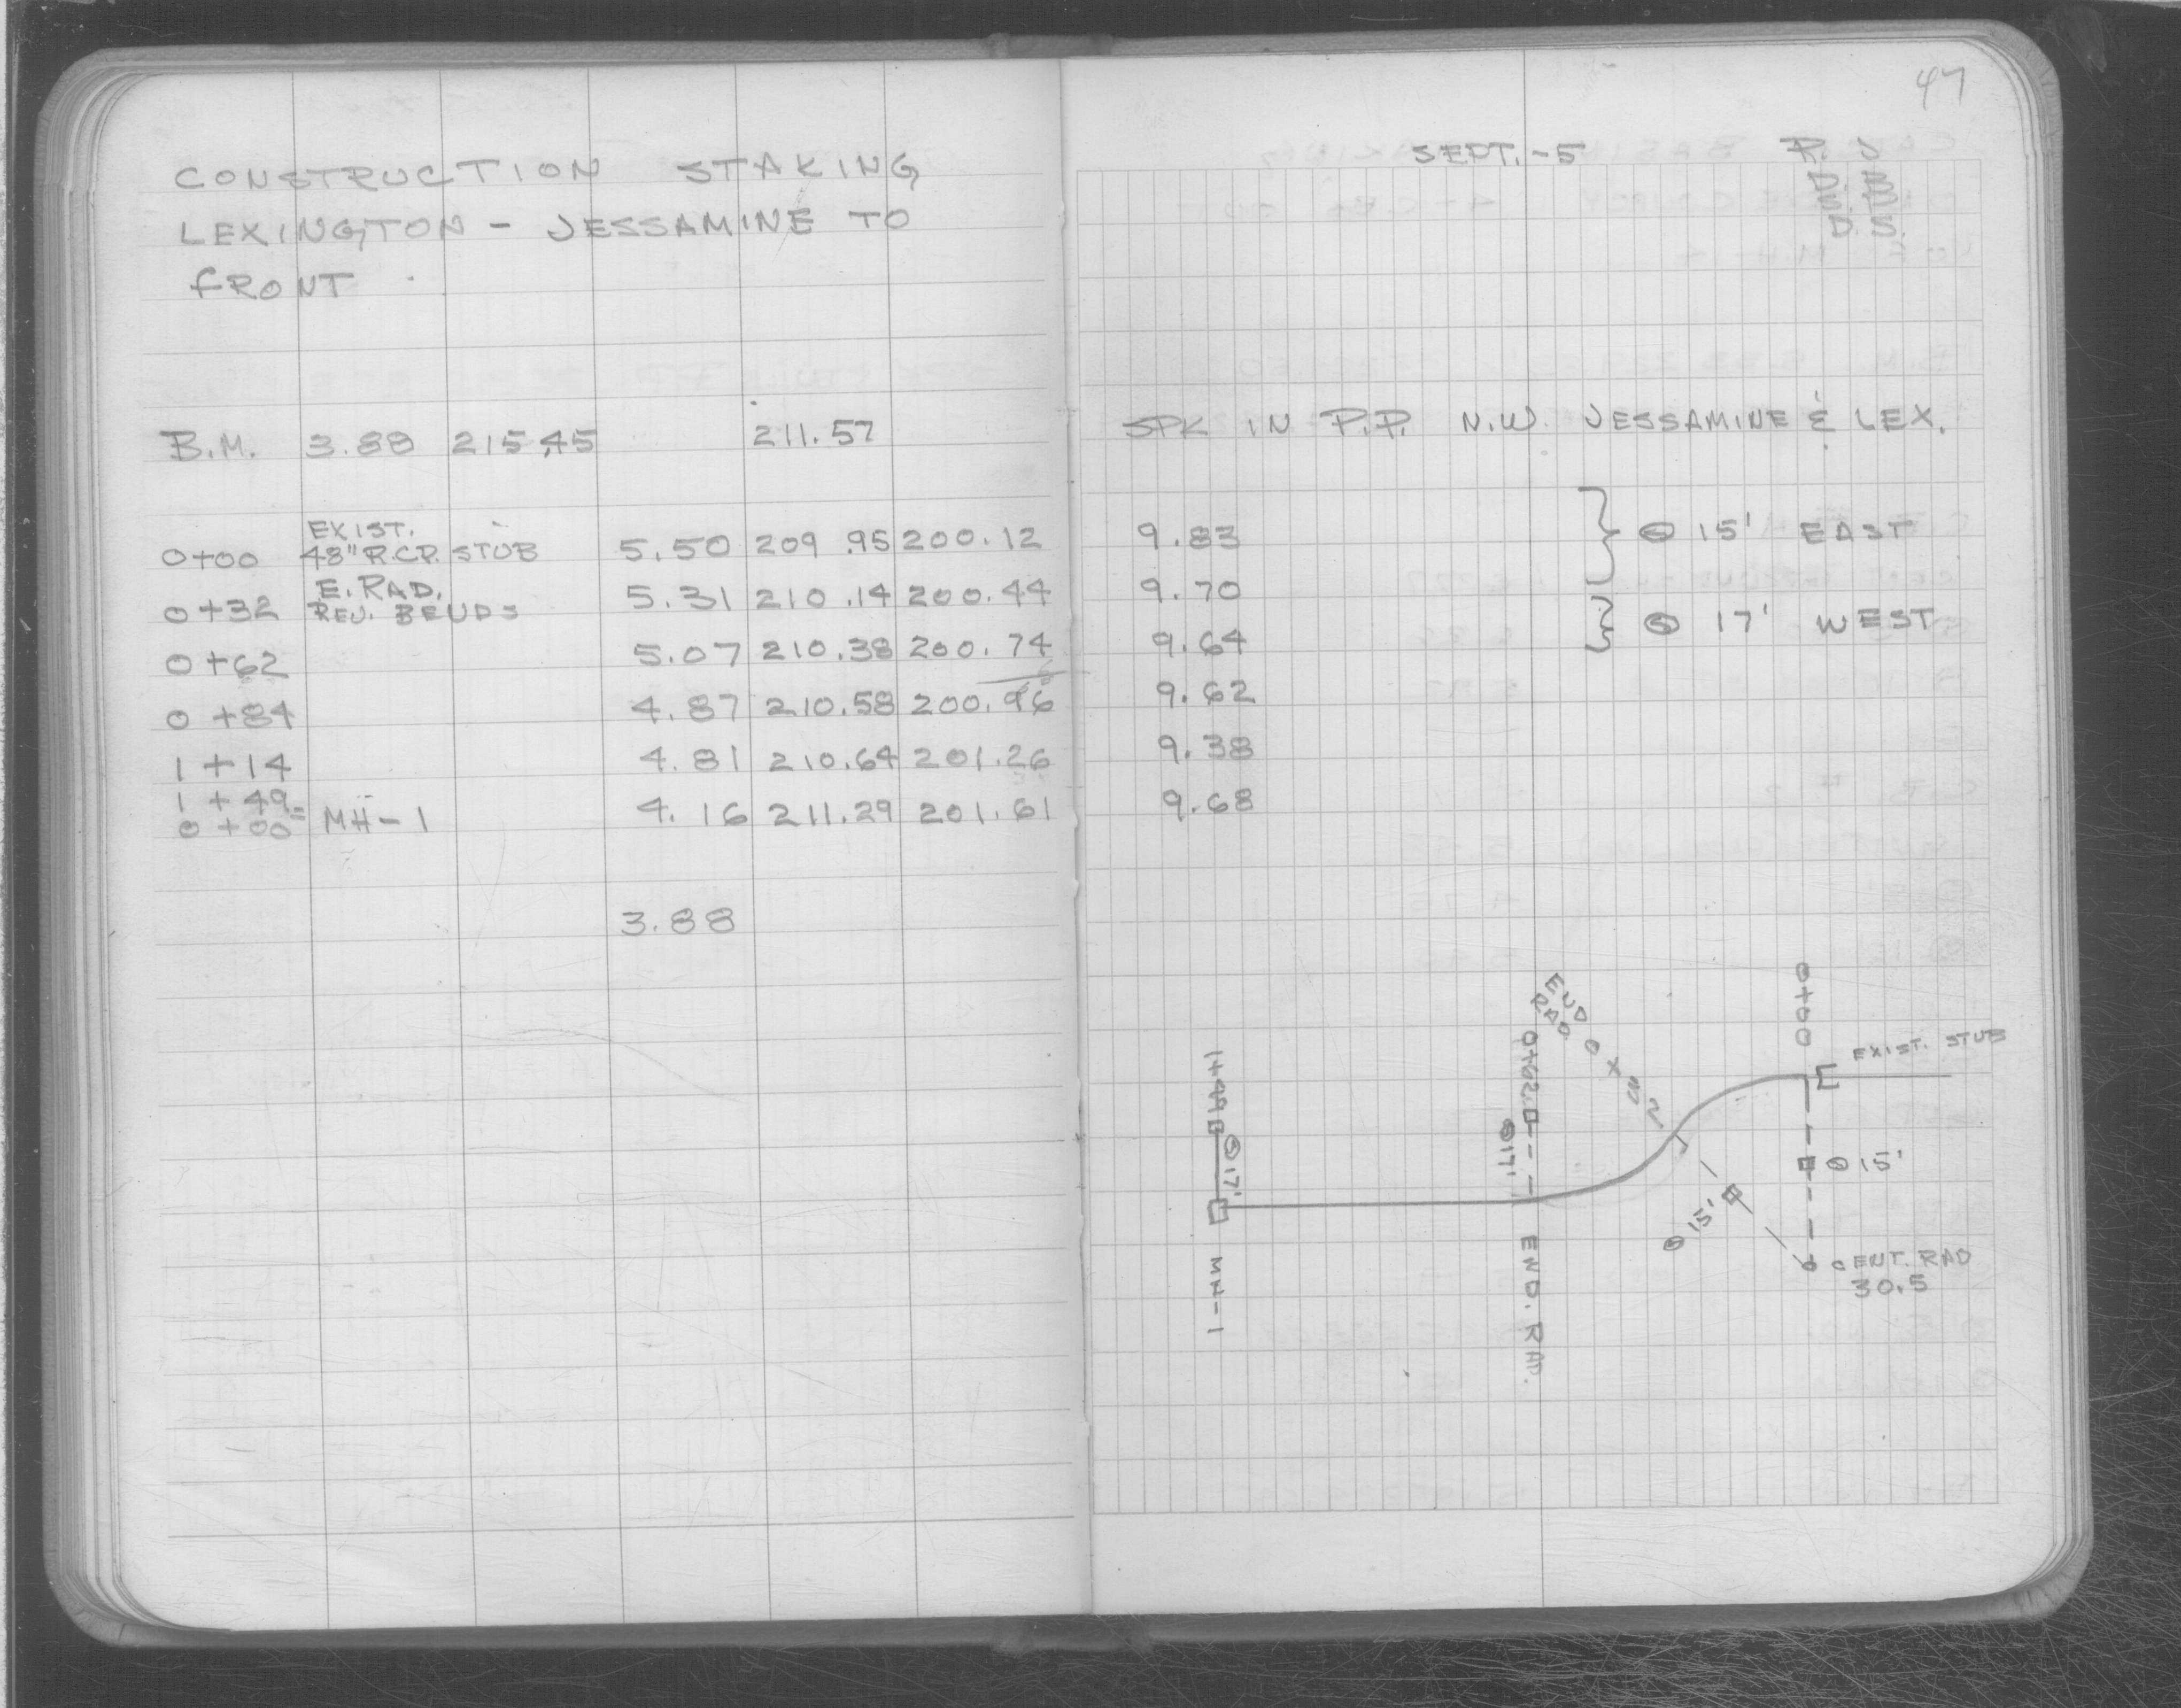 47
CONSTRUCTION STAKING
LEXINGTON - JESSAMINE TO
FRONT
SEPT.-5
R. J
D. S.
B.M. 3.88 215.45 211.57 SPK IN P.P. N.W. JESSAMINE & LEX.
0+00 EXIST. 48" R.C.P. STUB 5.50 209.95 200.12 9.83 15' EAST
0+32 E. RAD. REV. BENDS 5.31 210.14 200.44 9.70
0+62 5.07 210.38 200.74 9.64 17' WEST
0+84 4.87 210.58 200.96 9.62
1+14 4.81 210.64 201.26 9.38
1+49= 0+00 MH-1 4.16 211.29 201.61 9.68
3.88
0+00
EXIST. STUB
END RAD 0+32
0+62
17'
1+49
17'
15'
15'
CENT. RAD
30.5
MH-1
END. RAD.